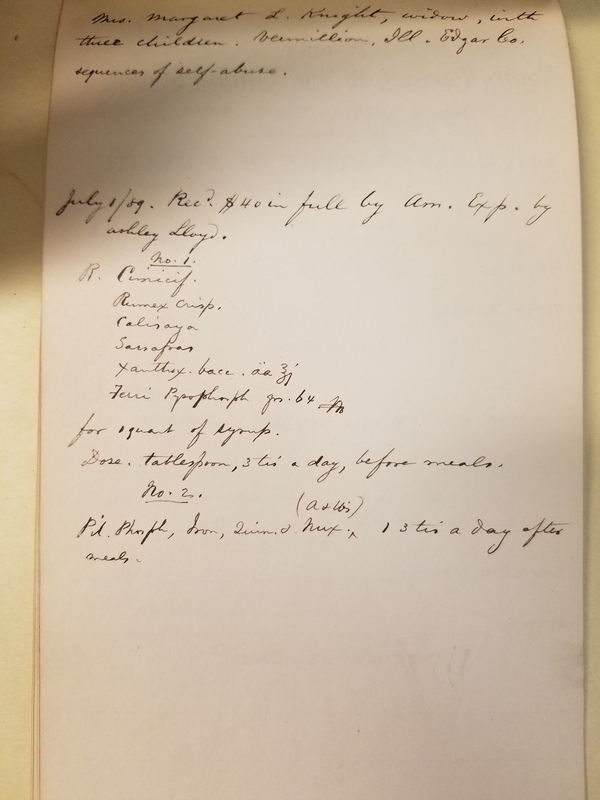 Mrs. Margaret L. Knight, widow, with
three children. Vermillion, Ill. Edgar Co.
sequences of self-abuse.
July 1/89. Rec'd. $40 in full by Am. Exp. by
Ashley Lloyd.
No. 1.
R. Cimicif.
Rumex Crisp.
Calisaya
Sassafras
Xanthox. bacc. āā ℥j
Ferri Pyrophosph grs. 64 M
for 1 quart of syrup.
Dose. tablespoon, 3 tis a day, before meals.
No. 2.
(A & W's)
Pil. Phosph, Iron, Quin. & Nux.^ 1 3 tis a day after
meals.